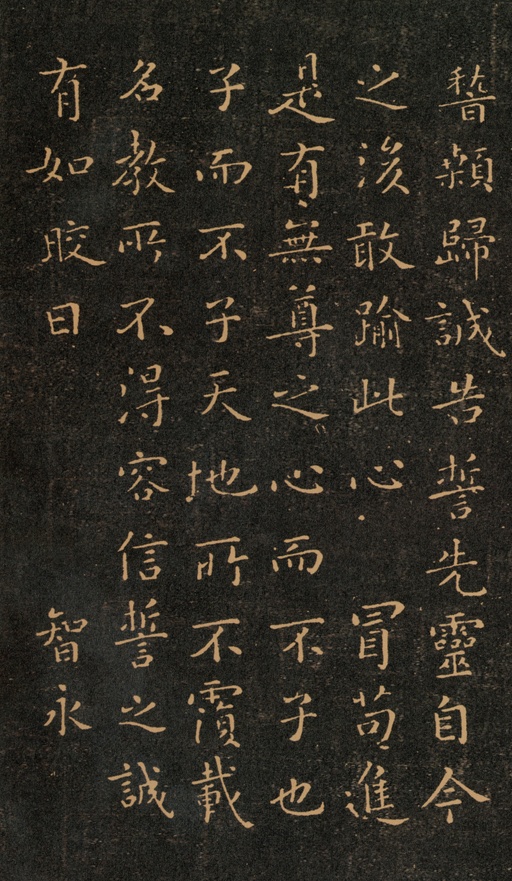 稽顙歸誠告誓先靈自今
之後敢踰此心 冒苟進
是有無尊之心而不子也
子而不子天地所不覆載
名教所不得容信誓之誠
有如晈日 智永